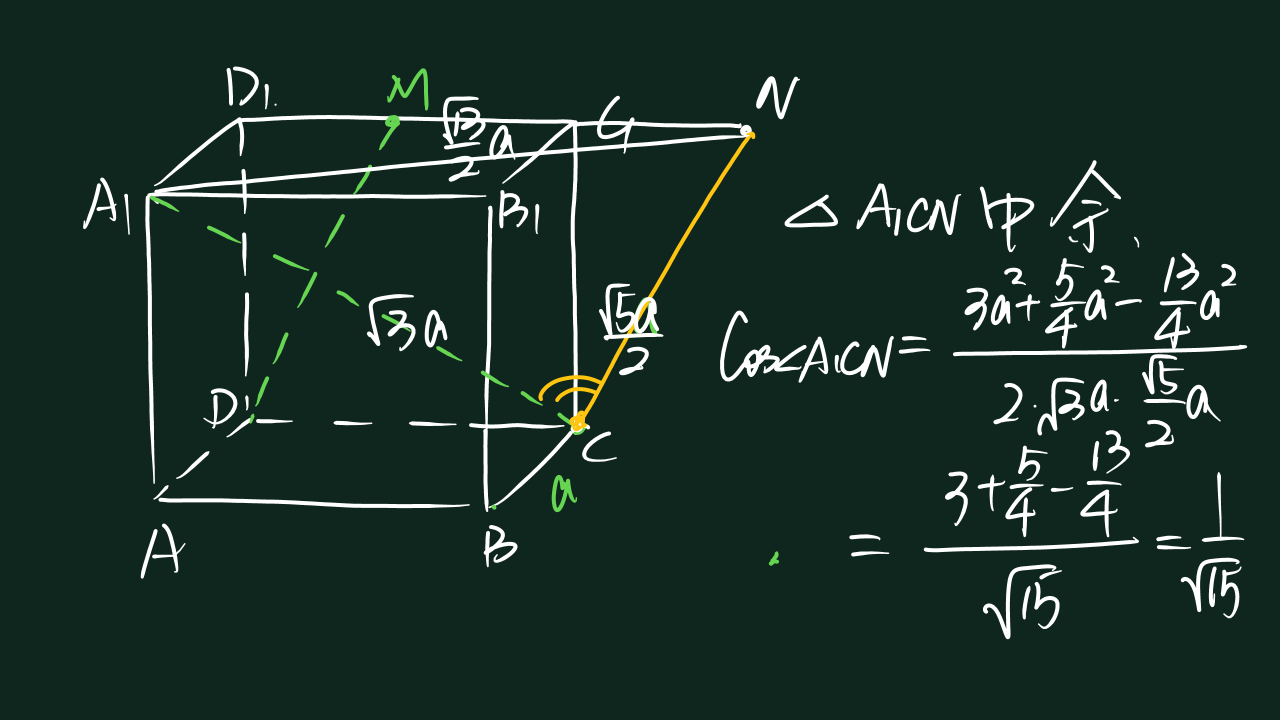 D₁
M
N
C₁
√13/2 a
A₁
B₁
√3a
√5a/2
D
C
a
A
B
△A₁CN中余
cos∠A₁CN = (3a²+5/4a²-13/4a²)/(2·√3a·√5/2a)
= (3+5/4-13/4)/√15 = 1/√15